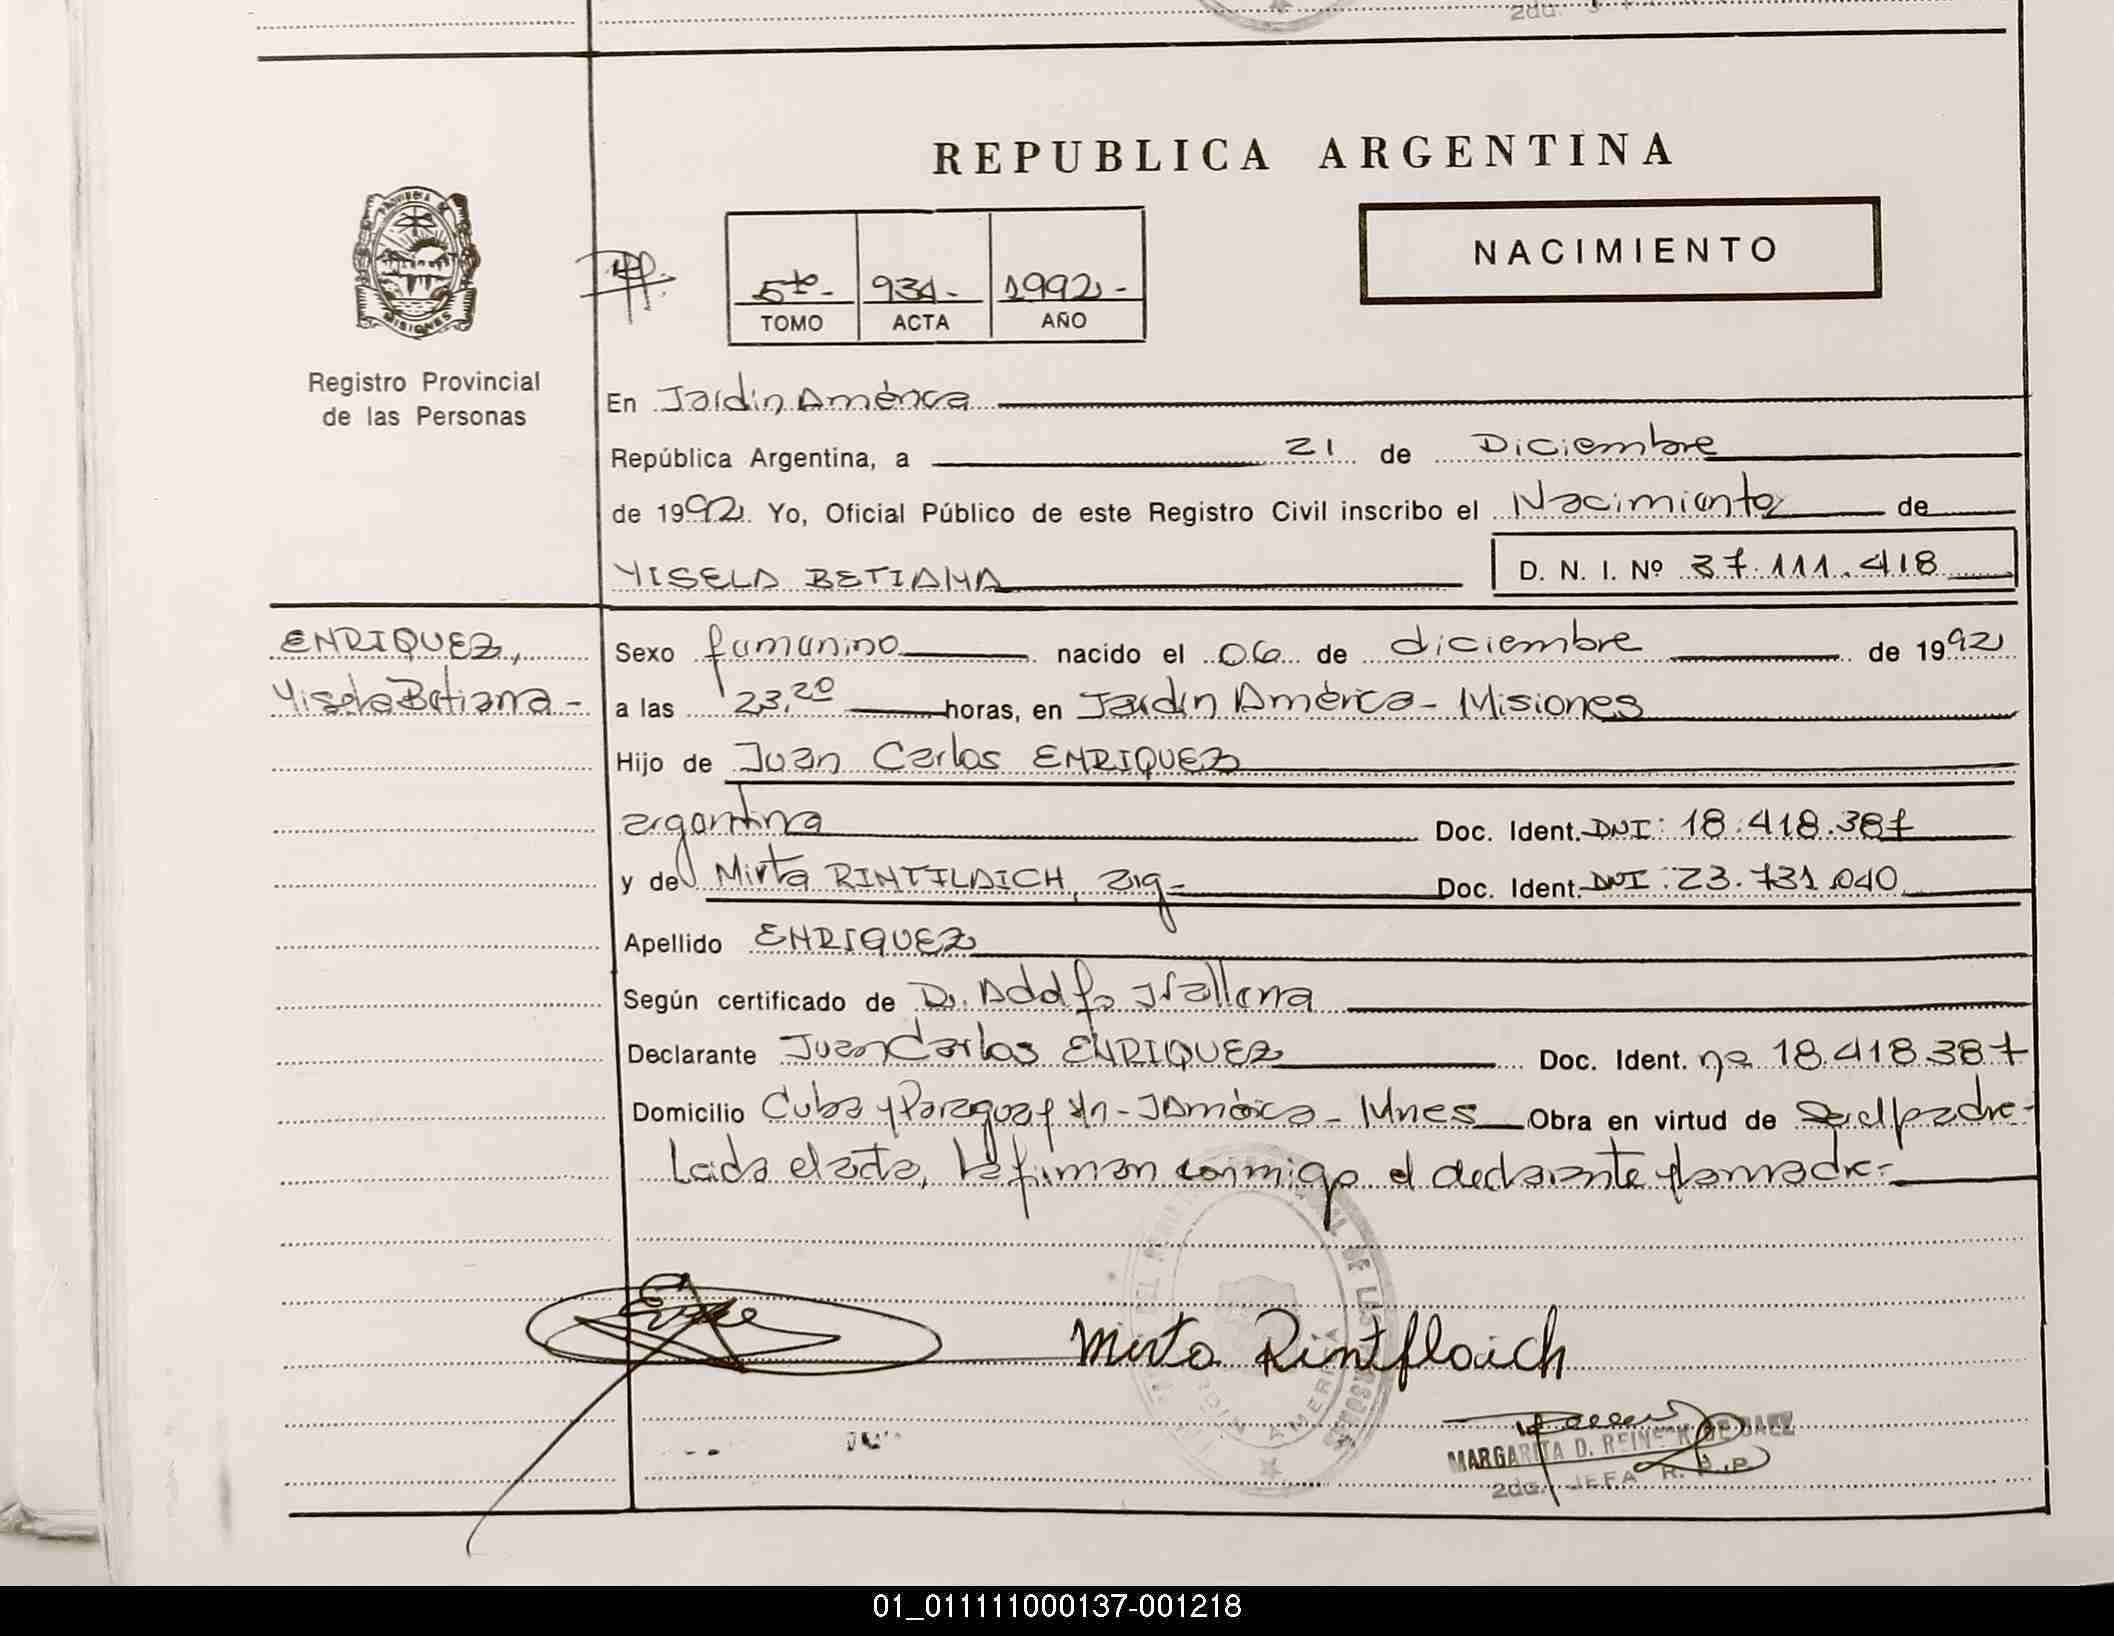 REPUBLICA ARGENTINA
NACIMIENTO
5to - 934 - 1992 -
TOMO ACTA AÑO
PROVINCIA DE
MISIONES
Registro Provincial
de las Personas
En Jardin América
República Argentina, a 21 de Diciembre
de 1992. Yo, Oficial Público de este Registro Civil inscribo el Nacimiento de
YISELA BETIANA D. N. I. Nº 37.111.418
ENRIQUEZ,
Yisela Betiana -
Sexo femenino nacido el 06 de diciembre de 1992
a las 23,20 horas, en Jardin América - Misiones
Hijo de Juan Carlos ENRIQUEZ
argentina Doc. Ident. DNI: 18.418.387
y de Mirta RINTFLAICH, arg - Doc. Ident. DNI: 23.731.040
Apellido ENRIQUEZ
Según certificado de Dr. Adolfo
Declarante Juan Carlos ENRIQUEZ Doc. Ident. nº 18.418.387
Domicilio Cuba y Paraguay s/n - J América - Mnes Obra en virtud de Ser el padre -
Leida el acta, la firman conmigo el declarante y la madre -
Mirta Rintflaich
DE LAS PERSONAS
JARDIN AMERICA
MARGARITA D. REINECK DE BAEZ
2da. JEFA R. P. P.
01_011111000137-001218